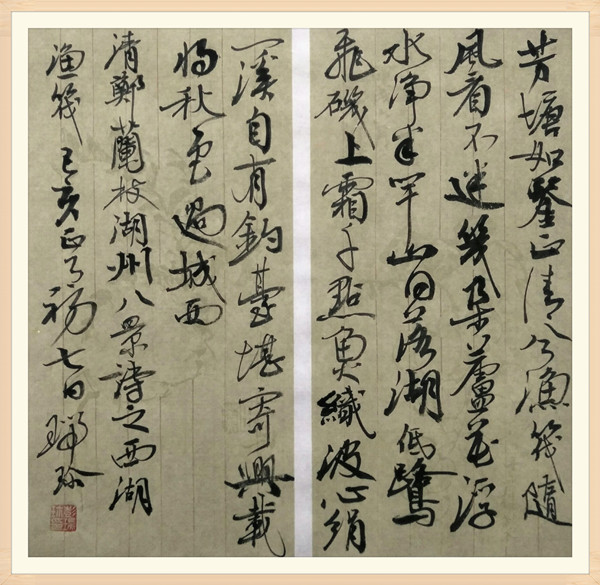 芳塘如鑒正清兮漁筏隨
風看不迷幾朵蘆花浮
水淨半竿山日落湖低鷺
飛磯上霜千點魚織波心絹
一溪自有釣臺堪寄興載
將秋過城西
清鄭蘭枝湖州八景詩之西湖
漁筏 己亥正月初七日 瑞珍